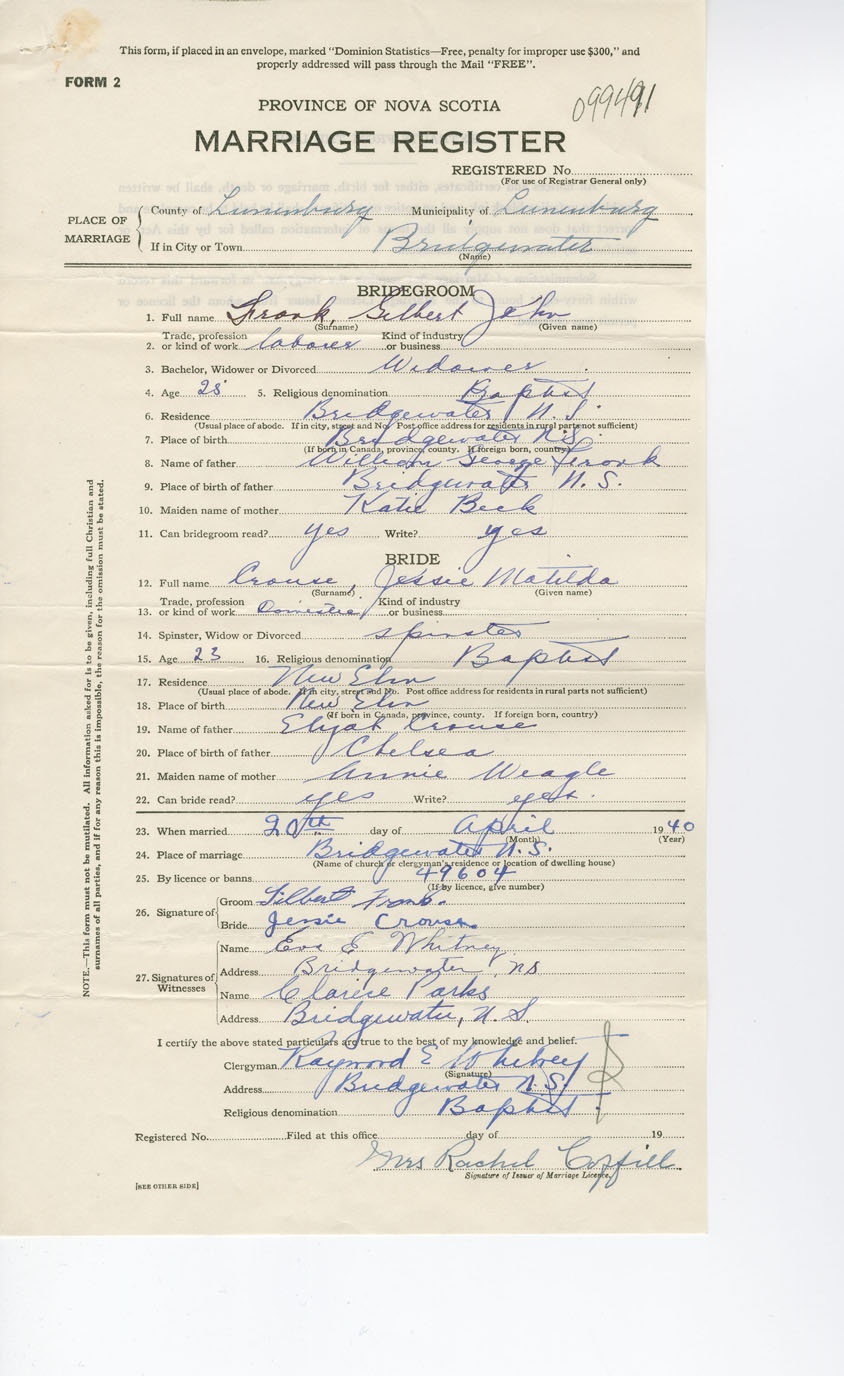 This form, if placed in an envelope, marked "Dominion Statistics—Free, penalty for improper use $300," and
properly addressed will pass through the Mail "FREE".
FORM 2
099491
PROVINCE OF NOVA SCOTIA
MARRIAGE REGISTER
REGISTERED No.
(For use of Registrar General only)
PLACE OF MARRIAGE
County of Lunenburg Municipality of Lunenburg
If in City or Town Bridgewater
(Name)
BRIDEGROOM
1. Full name Frank, Gilbert John
(Surname) (Given name)
Trade, profession Kind of industry
2. or kind of work laborer or business
3. Bachelor, Widower or Divorced Widower
4. Age 28 5. Religious denomination Baptist
6. Residence Bridgewater N.S.
(Usual place of abode. If in city, street and No. Post office address for residents in rural parts not sufficient)
7. Place of birth Bridgewater N.S.
(If born in Canada, province, county. If foreign born, country)
8. Name of father William George Frank
9. Place of birth of father Bridgewater N.S.
10. Maiden name of mother Katie Beck
11. Can bridegroom read? yes Write? yes
BRIDE
12. Full name Crouse, Jessie Matilda
(Surname) (Given name)
Trade, profession Kind of industry
13. or kind of work Domestic or business
14. Spinster, Widow or Divorced spinster
15. Age 23 16. Religious denomination Baptist
17. Residence New Elm
(Usual place of abode. If in city, street and No. Post office address for residents in rural parts not sufficient)
18. Place of birth New Elm
(If born in Canada, province, county. If foreign born, country)
19. Name of father Elijah Crouse
20. Place of birth of father Chelsea
21. Maiden name of mother Annie Weagle
22. Can bride read? yes Write? yes.
23. When married 20th day of April 1940
(Month) (Year)
24. Place of marriage Bridgewater N.S.
(Name of church or clergyman's residence or location of dwelling house)
25. By licence or banns 49604
(If by licence, give number)
26. Signature of
Groom Gilbert Frank.
Bride Jessie Crouse.
27. Signatures of Witnesses
Name Eva E Whitney
Address Bridgewater, NS
Name Clarice Parks
Address Bridgewater, N.S.
I certify the above stated particulars are true to the best of my knowledge and belief.
Clergyman Raymond E Whitney
(Signature)
Address Bridgewater N.S.
Religious denomination Baptist
Registered No. Filed at this office day of 19
Mrs Rachel Corfill
Signature of Issuer of Marriage Licence.
[SEE OTHER SIDE]
NOTE.—This form must not be mutilated. All information asked for is to be given, including full Christian and
surnames of all parties, and if for any reason this is impossible, the reason for the omission must be stated.